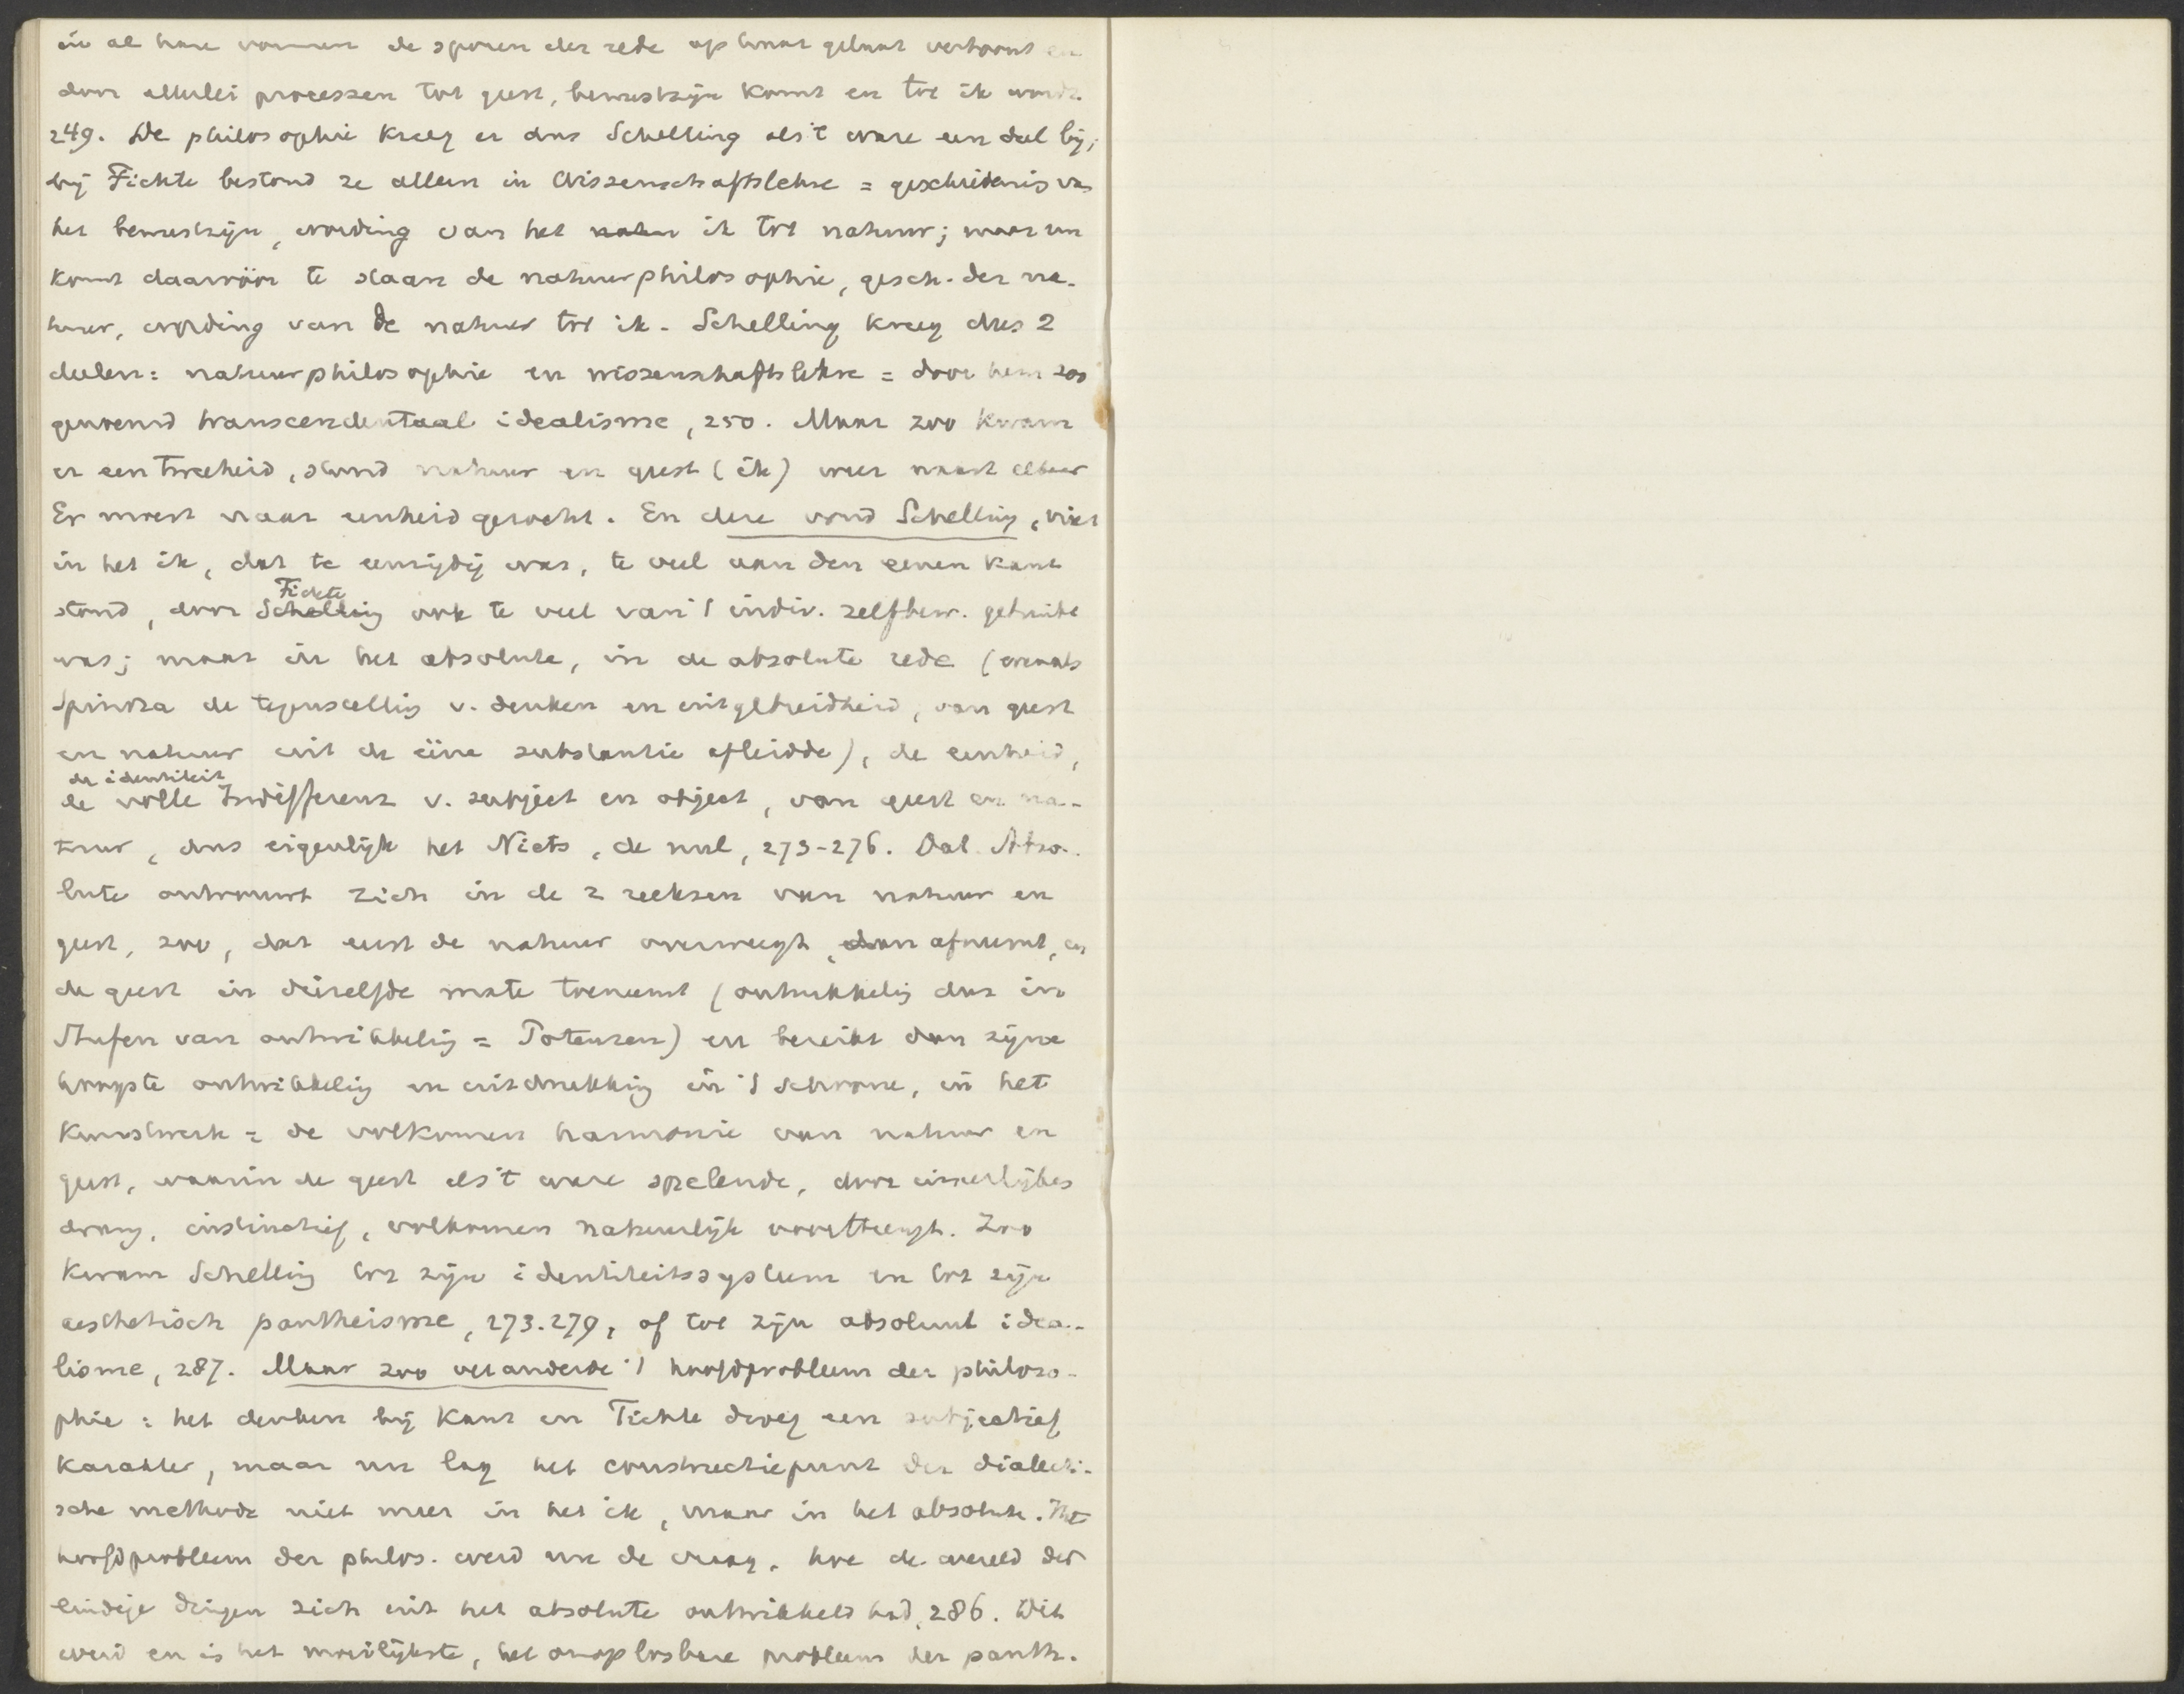 in al hare vormen de sporen der rede op haar gelaat vertoont en
door allerlei processen tot geest, bewustzijn komt en tot ik wordt.
249. De philosophie kreeg er dus Schelling als 't ware een deel bij;
bij Fichte bestond ze alleen in Wissenschaftslehre = geschiedenis van
het bewustzijn, wording van het natuu ik tot natuur; maar nu
komt daarvóór te staan de natuurphilosophie, gesch. der na-
tuur, wording van de natuur tot ik. Schelling kreeg dus 2
deelen: natuurphilosophie en wissenschaftslehre = door hem zoo
genoemd transcendentaal idealisme, 250. Maar zoo kwam
er een tweeheid, stond natuur en geest (ik) weer naast elkaar
Er moest naar eenheid gezocht. En deze vond Schelling, niet
in het ik, dat te eenzijdig was, te veel aan den eenen kant
stond, door Schelling Fichte ook te veel van 't indiv. zelfbew. gebruikt
was; maar in het absolute, in de absolute rede (evenals
Spinoza de tegenstellig v. denken en uitgebreidheid, van geest
en natuur uit de ééne substantie afleidde), de eenheid,
de identiteit
de volle Indifferenz v. subject en object, van geest en na-
tuur, dus eigenlijk het Niets, de nul, 273-276. Dat Abso-
lute ontvouwt zich in de 2 reeksen van natuur en
geest, zoo, dat eerst de natuur overweegt, dan afneemt, en
de geest in dezelfde mate toeneemt (ontwikkelig dus in
Stufen van ontwikkelig = Potenzen) en bereikt dan zijne
hoogste ontwikkelig en uitdrukkig in 't schoone, in het
kunstwerk = de volkomen harmonie van natuur en
geest, waarin de geest als 't ware spelende, door innerlijken
drang, instinctief, volkomen natuurlijk voortbrengt. Zoo
kwam Schellig tot zijn identiteitssysteem en tot zijn
aesthetisch pantheisme, 273.279, of tot zijn absoluut idea-
lisme, 287. Maar zoo veranderde 't hoofdprobleem der philoso-
phie: het denken bij Kant en Fichte droeg een subjectief
karakter, maar nu lag het constructiepunt der dialecti-
sche methode niet meer in het ik, maar in het absolute. Het
hoofdprobleem der philos. werd nu de vraag, hoe de wereld der
eindige dingen zich uit het absolute ontwikkeld had, 286. Dit
werd en is het moeilijkste, het onoplosbare probleem der panth.